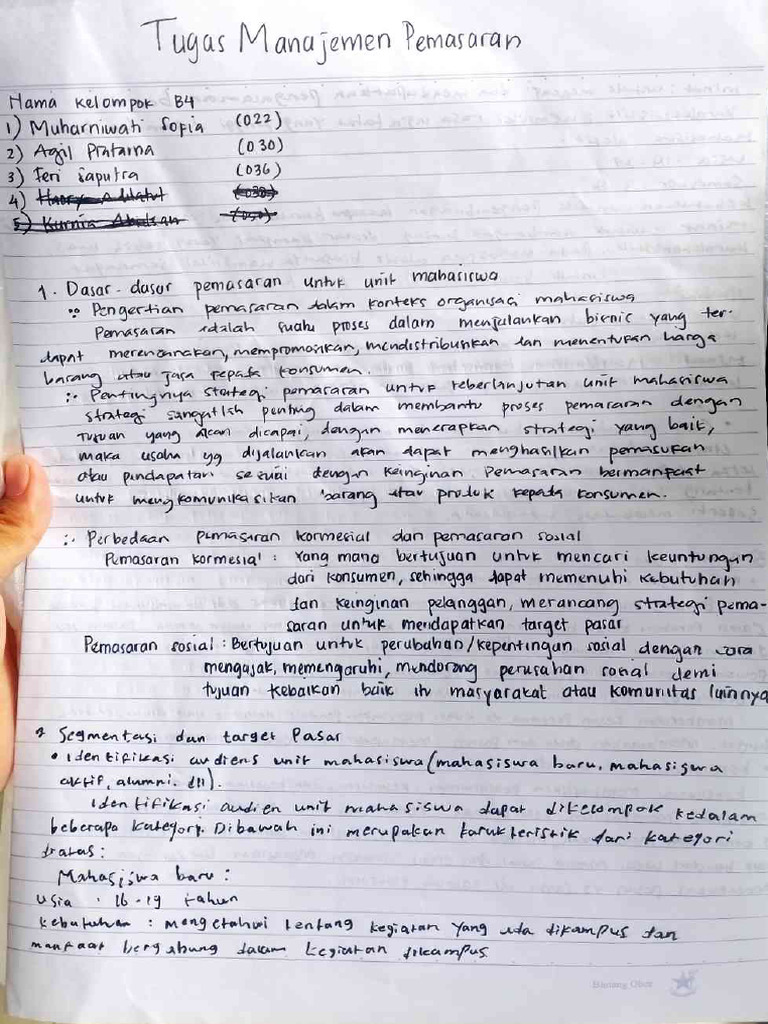 Tugas Manajemen Pemasaran
Nama Kelompok B4
1) Muharniwati Sopia (022)
2) Agil Pratama (030)
3) Feri Saputra (036)
4)
5) Kurnia
1. Dasar-dasar pemasaran untuk unit mahasiswa
Pengertian pemasaran dalam konteks organisasi mahasiswa
Pemasaran adalah suatu proses dalam menjalankan bisnis yang ter-
dapat merencanakan, mempromosikan, mendistribusikan dan menentukan harga
barang atau jasa kepada konsumen.
Pentingnya strategi pemasaran untuk keberlanjutan unit mahasiswa
strategi sangatlah penting dalam membantu proses pemasaran dengan
tujuan yang akan dicapai, dengan menerapkan strategi yang baik,
maka usaha yg dijalankan akan dapat menghasilkan pemasukan
atau pendapatan sesuai dengan keinginan. Pemasaran bermanfaat
untuk mengkomunikasikan barang atau produk kepada konsumen.
Perbedaan pemasaran kormesial dan pemasaran sosial
Pemasaran kormesial : Yang mana bertujuan untuk mencari keuntungan
dari konsumen, sehingga dapat memenuhi kebutuhan
dan keinginan pelanggan, merancang strategi pema-
saran untuk mendapatkan target pasar
Pemasaran sosial : Bertujuan untuk perubahan/kepentingan sosial dengan cara
mengajak, memengaruhi, mendorong perusahan sosial demi
tujuan kebaikan baik itu masyarakat atau komunitas lainnya
Segmentasi dan target Pasar
• Identifikasi audiens unit mahasiswa (mahasiswa baru, mahasiswa
aktif, alumni. dll).
Identifikasi audien unit mahasiswa dapat dikelompok kedalam
beberapa kategori. Dibawah ini merupakan karakteristik dari kategori
diatas:
Mahasiswa baru :
Usia : 16-19 tahun
kebutuhan : mengetahui tentang kegiatan yang ada dikampus dan
manfaat bergabung dalam kegiatan dikampus
Bintang Obor